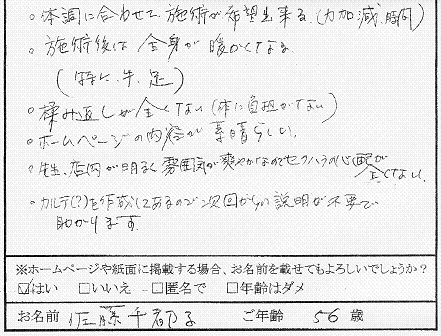 。体調に合わせて、施術が希望出来る。(力加減、時間)
。施術後は全身が暖かくなる
(特に、手、足)
。揉み返しが全くない(体に負担がない)
。ホームページの内容が素晴らしい。
。先生、店内が明るく雰囲気が爽やかなのでセクハラの心配が
全くない。
。カルテ(?)を作成してあるので次回からの説明が不要で
助かります。
※ホームページや紙面に掲載する場合、お名前を載せてもよろしいでしょうか?
☑はい □いいえ □匿名で □年齢はダメ
お名前 佐藤千都子 ご年齢 56 歳